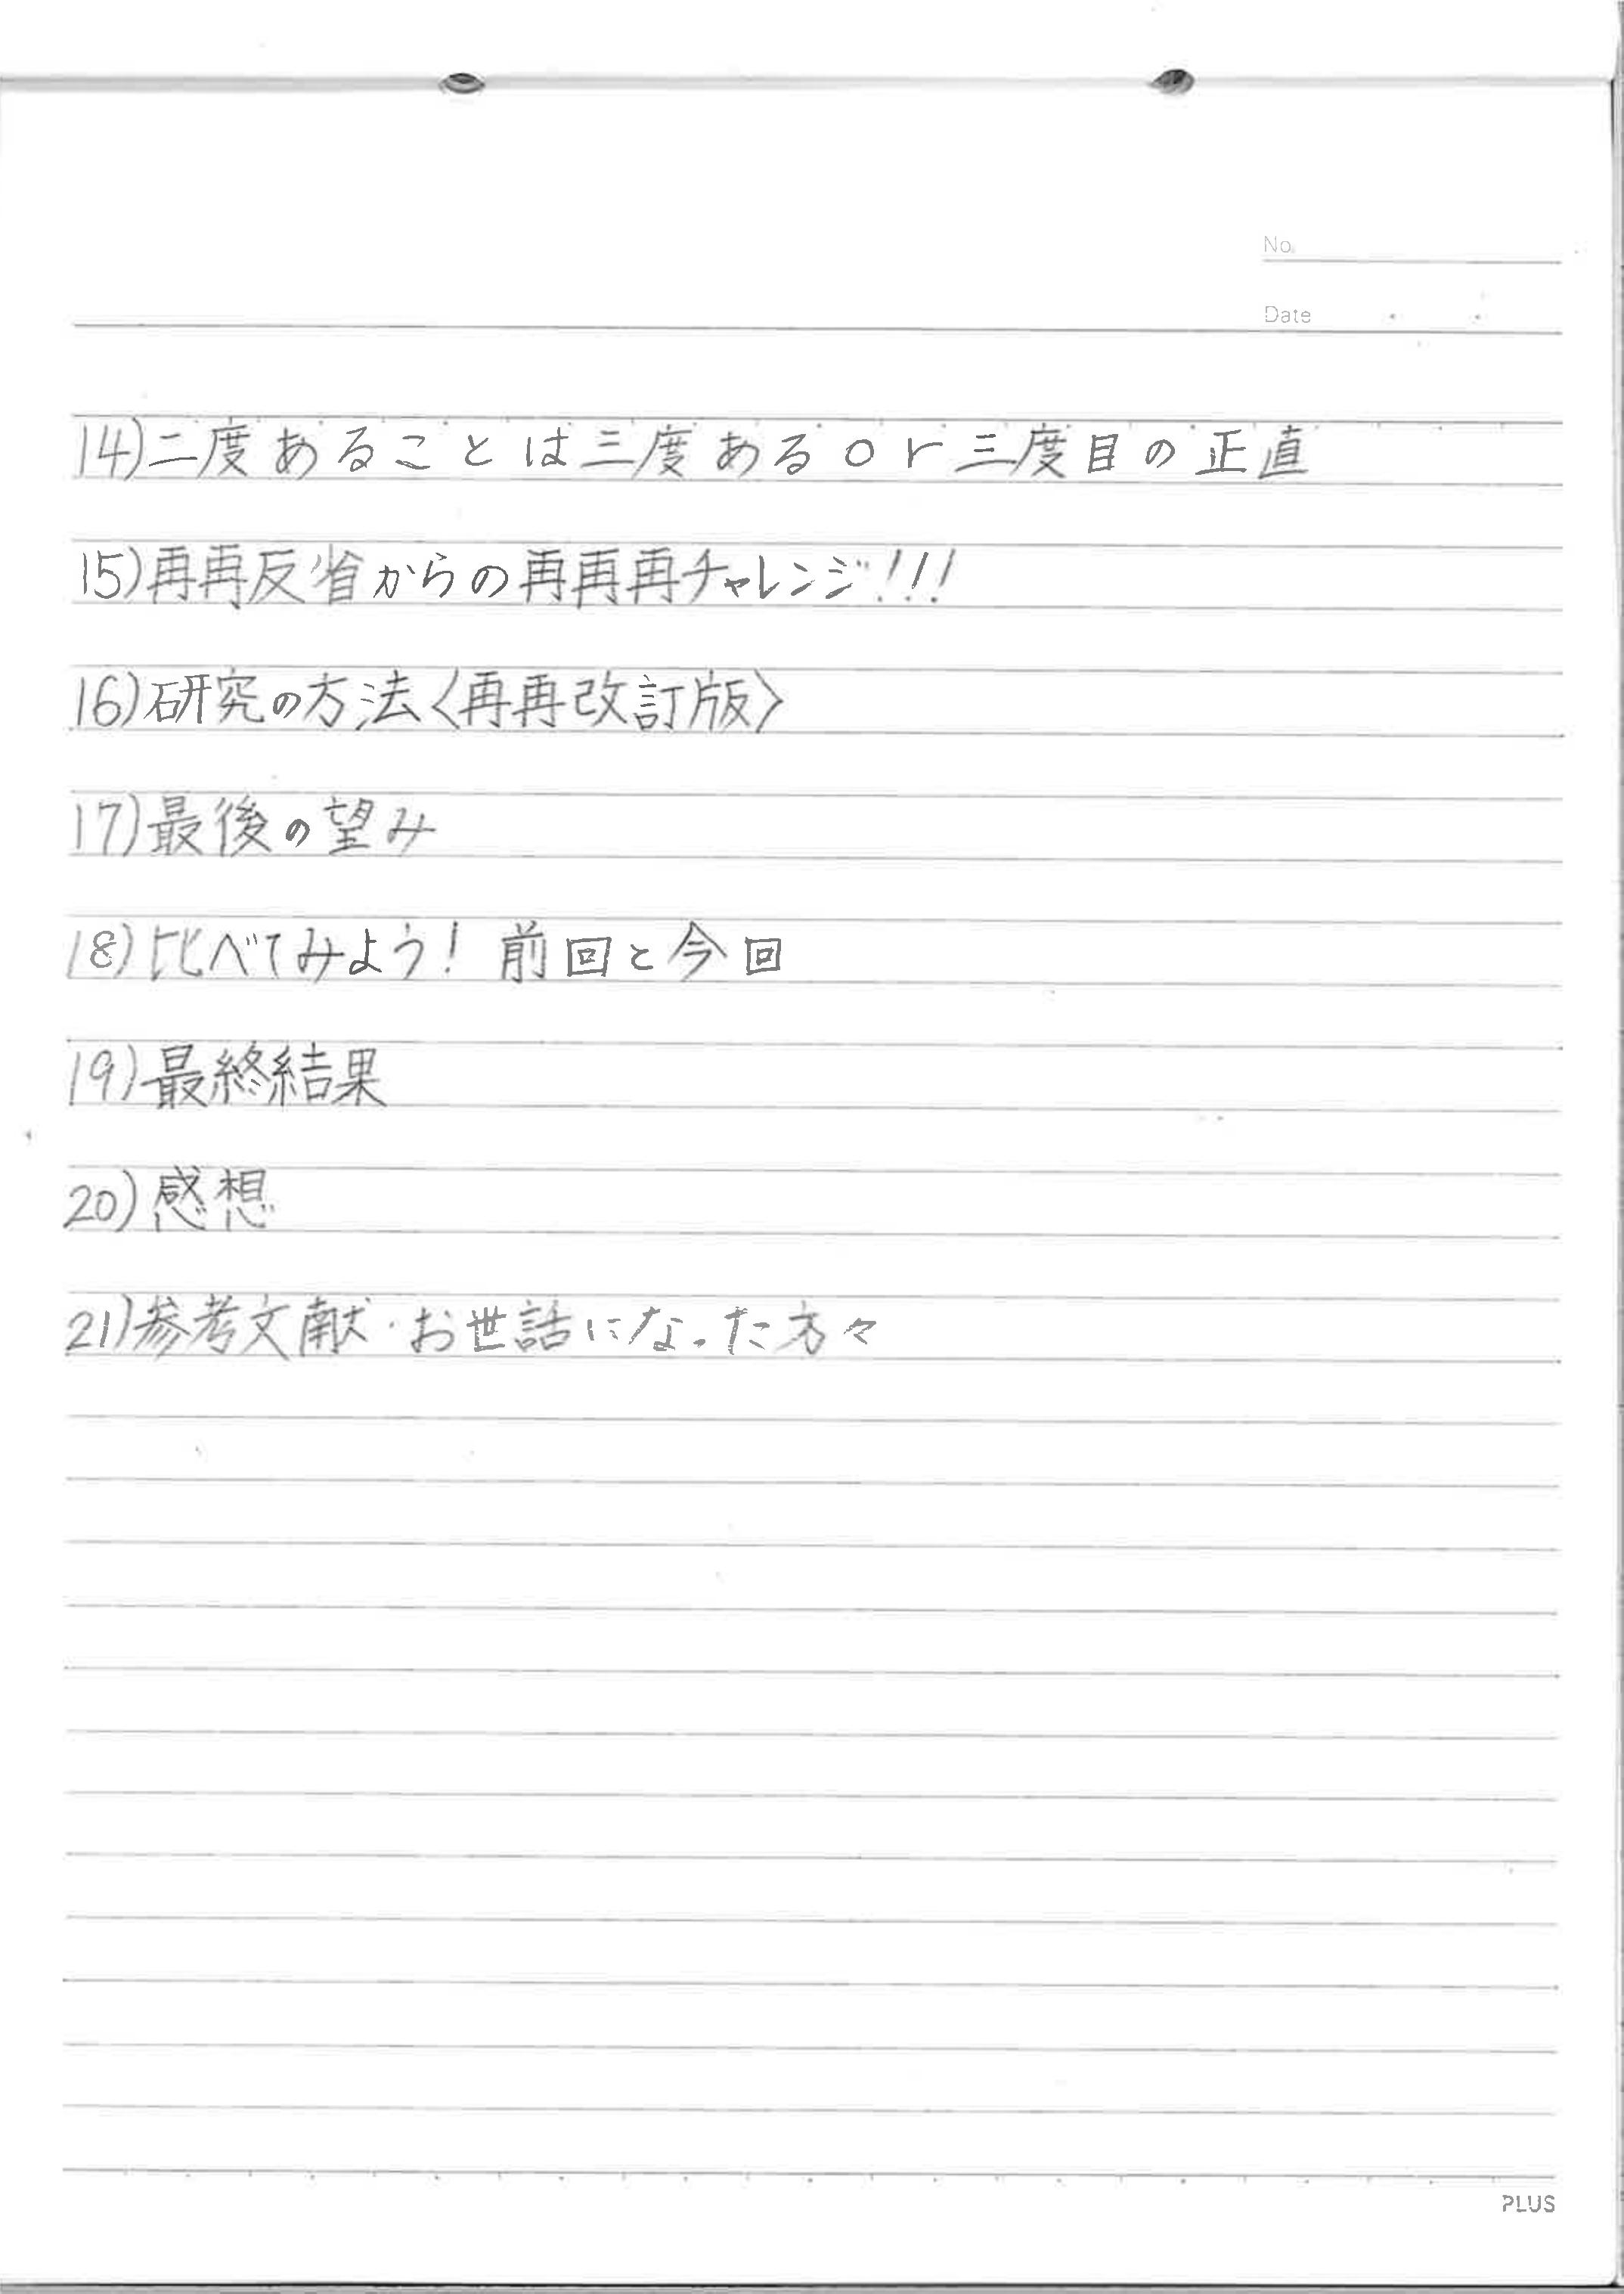 No.
Date
14)二度あることは三度あるor三度目の正直
15)再再反省からの再再再チャレンジ!!!
16)研究の方法〈再再改訂版〉
17)最後の望み
18)比べてみよう! 前回と今回
19)最終結果
20)感想
21)参考文献・お世話になった方々
PLUS